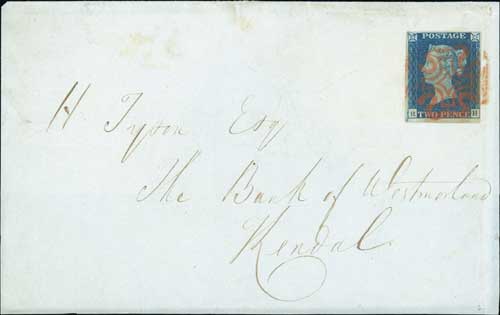 POSTAGE
TWO PENCE
H Tyson Esq
The Bank of Westmorland
Kendal